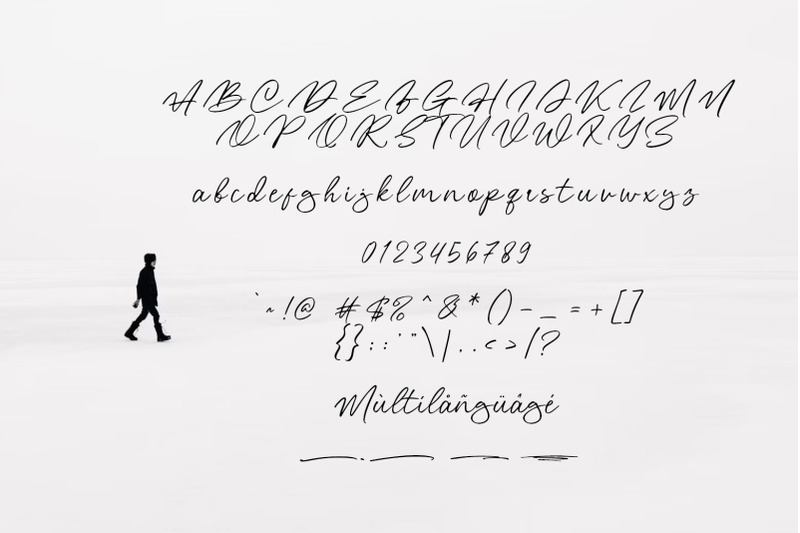 A B C D E F G H I J K L M N
O P Q R S T U V W X Y Z
a b c d e f g h i j k l m n o p q r s t u v w x y z
0 1 2 3 4 5 6 7 8 9
` ~ ! @ # $ % ^ & * ( ) - _ = + [ ]
{ } : ; ' " \ | . , < > / ?
Mùltilåñgüågé